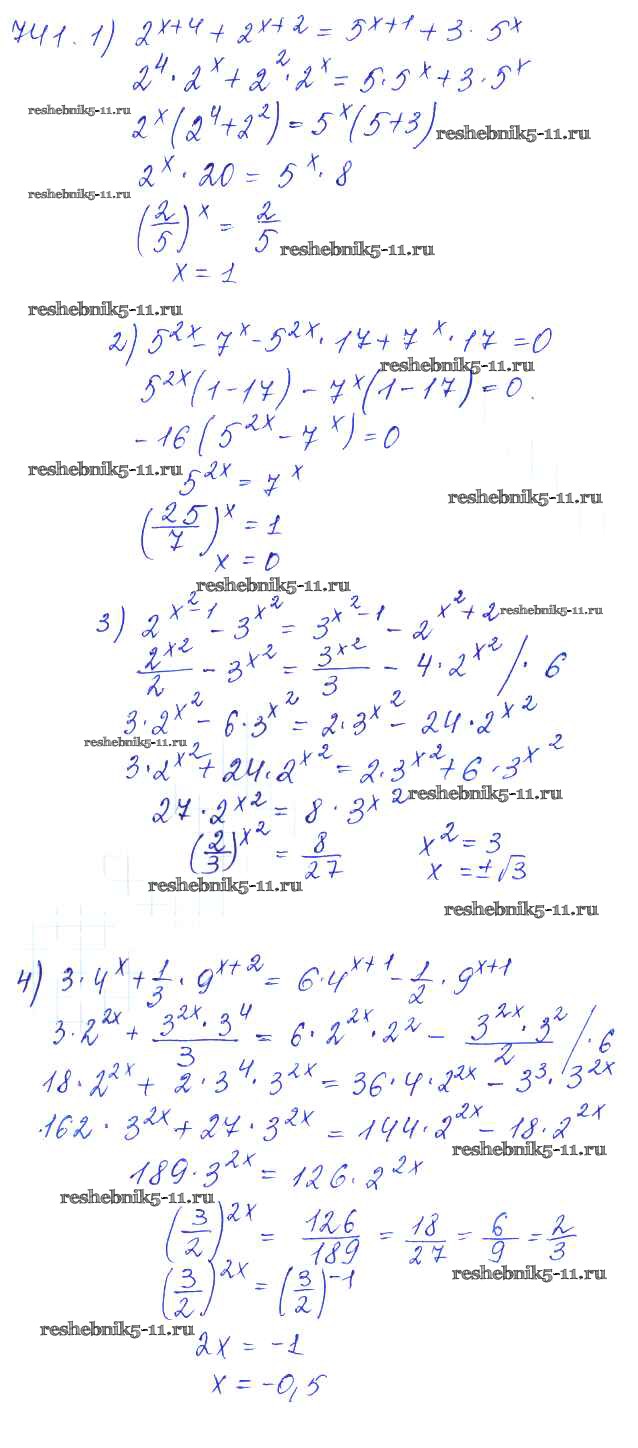 741. 1) 2^(x+4) + 2^(x+2) = 5^(x+1) + 3 · 5^x
2^4 · 2^x + 2^2 · 2^x = 5 · 5^x + 3 · 5^x
reshebnik5-11.ru
2^x (2^4 + 2^2) = 5^x (5 + 3)
reshebnik5-11.ru
2^x · 20 = 5^x · 8
reshebnik5-11.ru
(2/5)^x = 2/5
reshebnik5-11.ru
x = 1
reshebnik5-11.ru
2) 5^(2x) - 7^x - 5^(2x) · 17 + 7^x · 17 = 0
reshebnik5-11.ru
5^(2x) (1 - 17) - 7^x (1 - 17) = 0.
-16 (5^(2x) - 7^x) = 0
reshebnik5-11.ru
5^(2x) = 7^x
reshebnik5-11.ru
(25/7)^x = 1
x = 0
reshebnik5-11.ru
3) 2^(x^2-1) - 3^(x^2) = 3^(x^2-1) - 2^(x^2+2)
reshebnik5-11.ru
2^(x^2)/2 - 3^(x^2) = 3^(x^2)/3 - 4 · 2^(x^2) / · 6
3 · 2^(x^2) - 6 · 3^(x^2) = 2 · 3^(x^2) - 24 · 2^(x^2)
reshebnik5-11.ru
3 · 2^(x^2) + 24 · 2^(x^2) = 2 · 3^(x^2) + 6 · 3^(x^2)
reshebnik5-11.ru
27 · 2^(x^2) = 8 · 3^(x^2)
(2/3)^(x^2) = 8/27 x^2 = 3
reshebnik5-11.ru
x = ±√3
reshebnik5-11.ru
4) 3 · 4^x + 1/3 · 9^(x+2) = 6 · 4^(x+1) - 1/2 · 9^(x+1)
3 · 2^(2x) + (3^(2x) · 3^4)/3 = 6 · 2^(2x) · 2^2 - (3^(2x) · 3^2)/2 / · 6
18 · 2^(2x) + 2 · 3^4 · 3^(2x) = 36 · 4 · 2^(2x) - 3^3 · 3^(2x)
162 · 3^(2x) + 27 · 3^(2x) = 144 · 2^(2x) - 18 · 2^(2x)
reshebnik5-11.ru
189 · 3^(2x) = 126 · 2^(2x)
reshebnik5-11.ru
(3/2)^(2x) = 126/189 = 18/27 = 6/9 = 2/3
reshebnik5-11.ru
(3/2)^(2x) = (3/2)^(-1)
reshebnik5-11.ru
2x = -1
x = -0,5